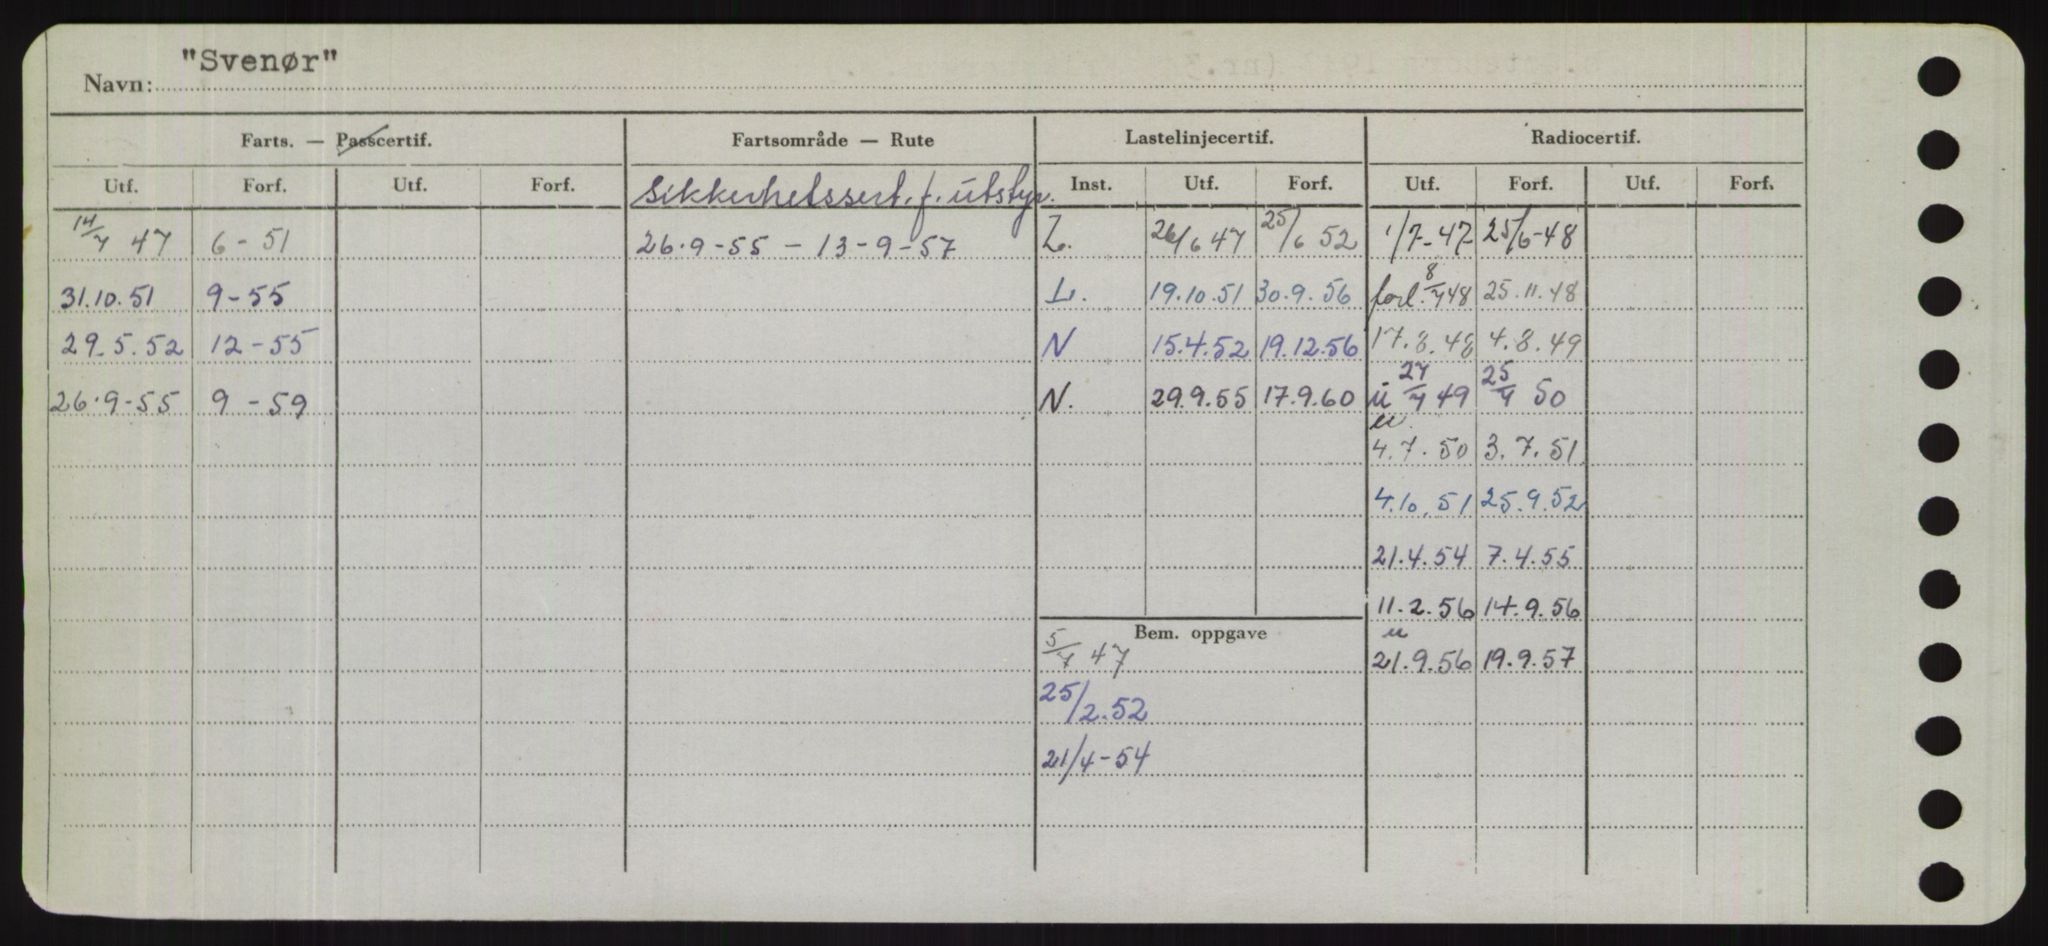 "Svenør"
Navn:
Farts. — Passcertif. Fartsområde — Rute Lastelinjecertif. Radiocertif.
Utf. Forf. Utf. Forf. Sikkerhetssert. f. utstyr. Inst. Utf. Forf. Utf. Forf. Utf. Forf.
14/7 47 6-51 26.9-55 - 13-9-57 L. 26/6 47 25/6 52 1/7-47 25/6-48
31.10.51 9-55 L. 19.10.51 30.9.56 forl. 8/7 48 25.11.48
29.5.52 12-55 N 15.4.52 19.12.56 17.8.48 4.8.49
26.9-55 9-59 N. 29.9.55 17.9.60 u 27/7 49 25/7 50
u
4.7.50 3.7.51
4.10.51 25.9.52
21.4.54 7.4.55
11.2.56 14.9.56
Bem. oppgave u
5/7 47 21.9.56 19.9.57
25/2.52
21/4-54